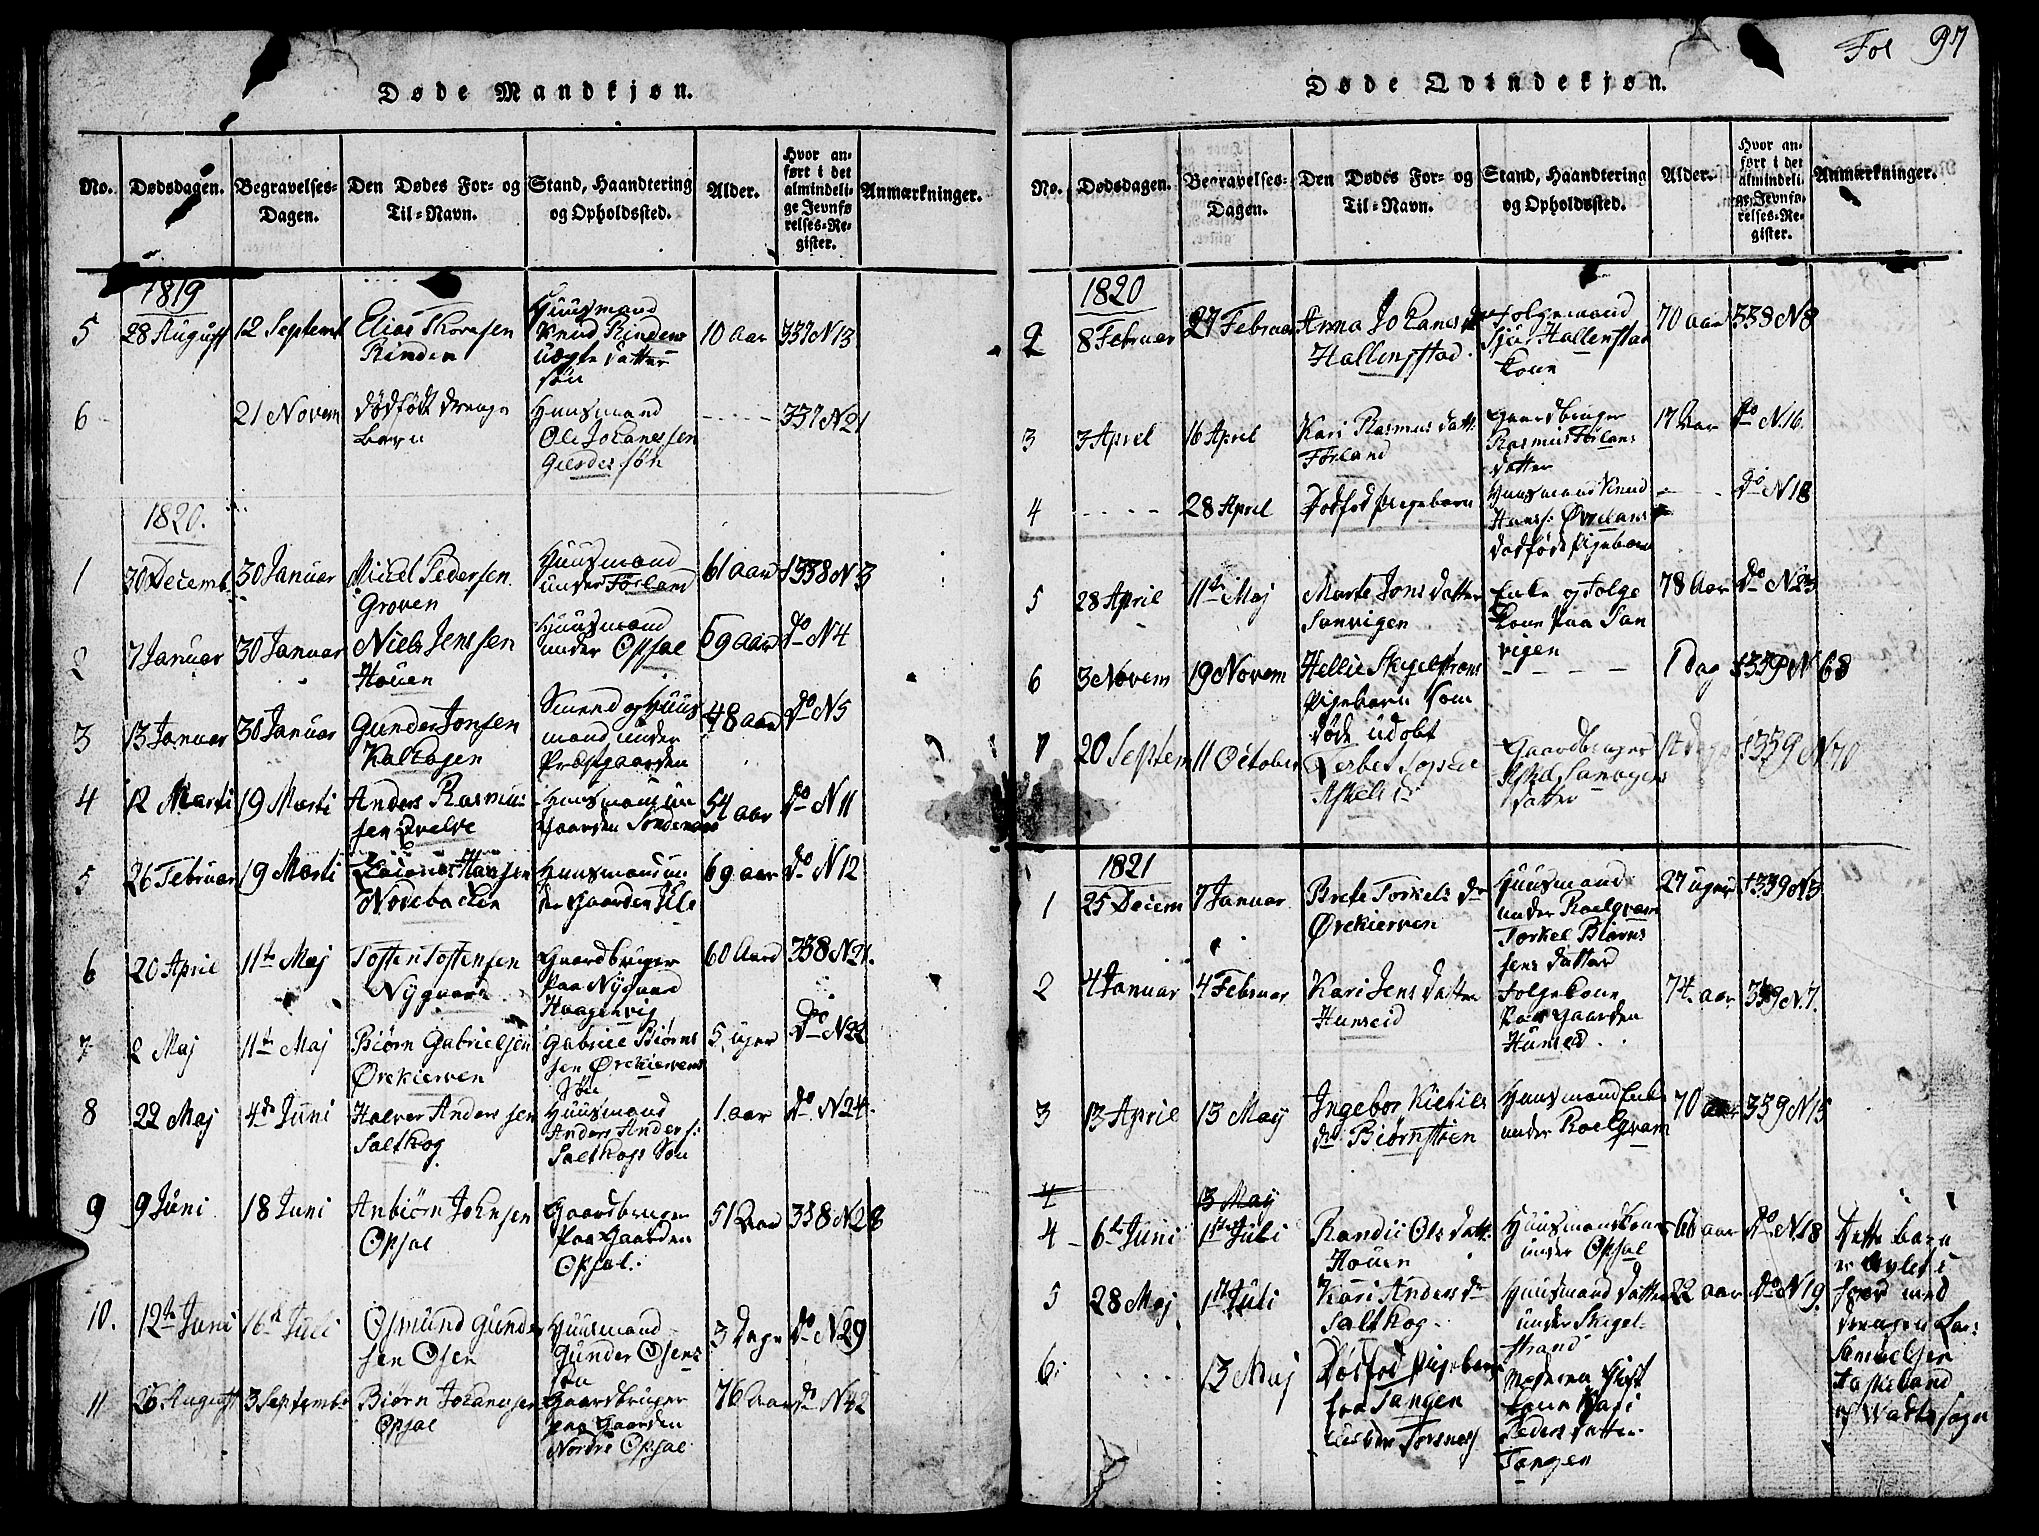 Fol 97
Døde Mandkjøn.
No. Dødsdagen. Begravelses-Dagen. Den Dødes For- og Til-Navn. Stand, Haandtering og Opholdssted. Alder. Hvor anført i det almindelige Jevnførelses-Register. Anmærkninger.
1819
5 28 August 12 Septemb Elias Thoresen Rinden Huusmand Knud Rindens uægte datter søn 10 aar 337 N 13
6 21 Novem dødfødt drenge barn Huusmand Ole Johanessen Gierdes søn 337 N 21
1820.
1 30 Decemb. 30 Januar Mickel Pedersen Groven Huusmand under Førland 61 aar 338 N 3
2 7 Januar 30 Januar Niels Jenssen Houen Huusmand under Opsal 69 aar do N 4
3 13 Januar 30 Januar Gunder Jonsen Smend og Huusmand under Præstgaarden 48 aar do N 5
4 12 Marti 19 Marti Anders Rasmussen Huusmand un Gaarden 54 aar do N 11
5 26 Februar 19 Marti Hansen Nordbacken Huusmand under Gaarden 69 aar do N 12
6 20 April 11te Maj Tosten Tostensen Nygaard Gaardbruger paa Nygaard Haagenvig 60 Aar 338 N 21.
7 2 Maj 11te Maj Biørn Gabrielsen Ørekierven Gabriel Biørnssen Ørekiervens søn 5 uger do N 22
8 22 Maj 4de Juni Halver Anderssen Saltkog Huusmand Anders Anders: Saltkogs Søn 1. aar do N 24.
9 9 Juni 18 Juni Anbiørn Johnsen Opsal Gaardbruger paa Gaarden Opsal. 51 Aar 338 N 28
10. 12te Juni 16de Juli Osmund Gundersen Osen Huusmand Gunder Osens søn 3 dage do N 29
11 26 August 3 Septembr Biørn Johannesen Opsal Gaardbruger paa Gaarden Nordre Opsal 76 Aar do N 42
Døde Qvindekjøn.
No. Dødsdagen. Begravelses-Dagen. Den Dødes For- og Til-Navn. Stand, Haandtering og Opholdssted. Alder. Hvor anført i det almindelige Jevnførelses-Register. Anmærkninger.
1820
2 8 Februar 27 Februar Anna Johanesd Hallenstad Folgemand Hallenstad kone 70 aar 338 N 8
3 3 April 16 April Kari Rasmusdatt: Førland Gaardbruger Rasmus Førlans datter 17 Aar do N. 16.
4 28 April Dødfød Pigebarn Huusmand Knud Hans: dødfødt Pigebarn do N 18
5 28 April 11te Maj Marte Jonsdatter Sanvigen Enke og Folge kone paa Sanvigen 78 Aar do N 23
6 3 Novem 19 Novem Hellie Skigelstrans Pigebarn som døde udøbt 1 dag 339 N 68
7 20 Septem 11 October Gaardbruger datter 339 N 70
1821
1 25 Decem 7 Januar Brete Torkels dr Ørekierven Huusmand under Roelgvam Torkel Biørnssens datter 27 uger 339 N 3
2 4 Januar 4 Februar Kari Jensdatter Hunseid Folgekone paa Gaarden Hunseid. 74. aar 339 N. 7.
3 13 April 13 Maij Ingebor Kietils dr Biørnstøen Huusmand Enke under Roelgvam 70 aar 339 N 15
4 13 Maij
4 6te Juni 1ste Juli Randie Olsdatt: Houen Huusmandskone under Opsal 66 aar do N. 18
5 28 Maj 1ste Juli Kari Anders dr Saltkog. Huusmand datter under Skigelstrand 22 aar do N 19.
6. 13 Maj Dødfød Pigebarn fra Tangen Moderen Kari Pedersdatter Tangen
Dette barn er avlet i med drengen Lars Samuelsen af Watts sogn